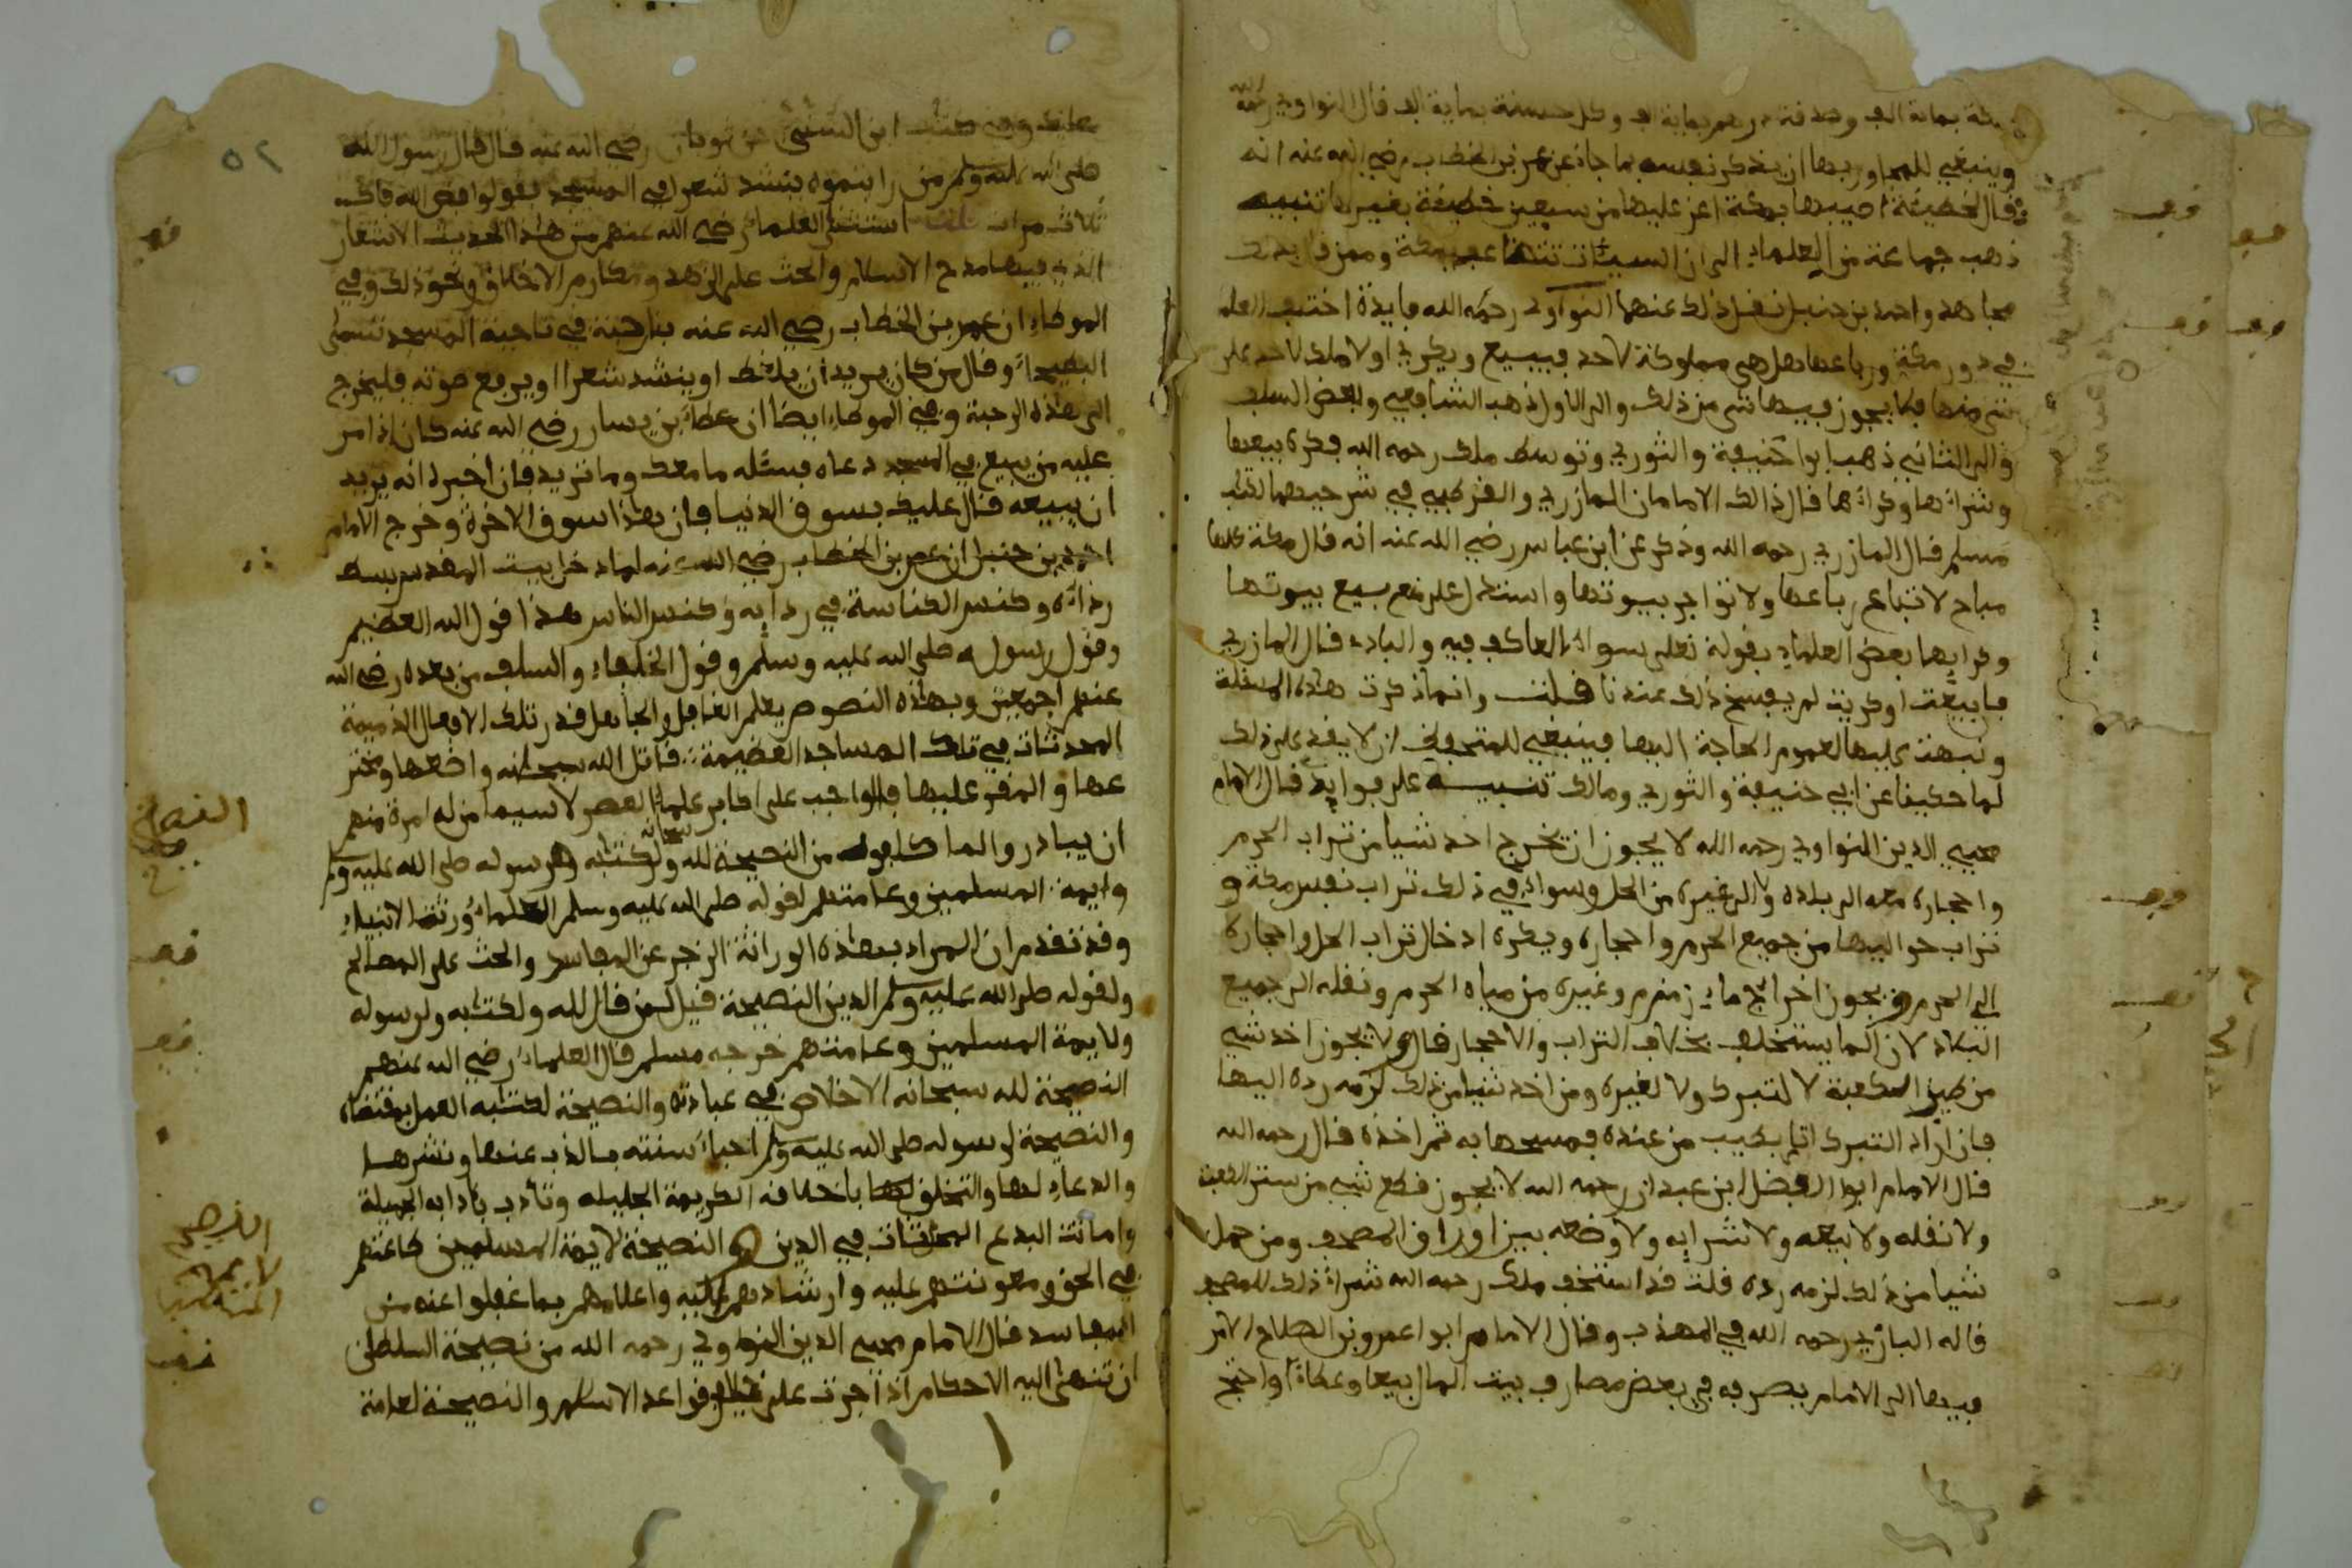 بمائة الف وصدقة درهم بمائة الف وكل حسنة بمائة الف قال النواوي رحمه الله
وينبغي للمجاور بها ان يذكر نفسه بما جاء عن عمر بن الخطاب رضي الله عنه انه
قال لخطيئة اصيبها بمكة اعز علي من سبعين خطيئة بغيرها تنبيه
ذهب جماعة من العلماء الى ان السيئات تتضاعف بمكة وممن قال بذلك
مجاهد واحمد بن حنبل نقل ذلك عنهما النواوي رحمه الله فايدة اختلف العلماء
في دور مكة ورباعها هل هي مملوكة لاحد فيبيع ويكري او لا ملك لاحد على
شي منها فلا يجوز فيها شي من ذلك والى الاول ذهب الشافعي وبعض السلف
والى الثاني ذهب ابو حنيفة والثوري وتوسط ملك رحمه الله فكره بيعها
وشراءها وكراءها قال ذالك الامامان المازري والقرطبي في شرحيهما لكتاب
مسلم قال المازري رحمه الله وذكر عن ابن عباس رضي الله عنه انه قال مكة كلها
مباح لا تباع رباعها ولا تواجر بيوتها واستدل على منع بيع بيوتها
وكرايها بعض العلماء بقوله تعلى سواء العاكف فيه والباد قال المازري
فان بيعت او كريت لم يفسخ ذلك عندنا قلت وانما ذكرت هذه المسئلة
ونبهت عليها لعموم الحاجة اليها فينبغي للمتحفظ ان لا يقدم على ذلك
لما حكينا عن ابي حنيفة والثوري ومالك تنبيه على فوايد قال الامام
محيي الدين النواوي رحمه الله لا يجوز ان يخرج احد شيا من تراب الحرم
واحجاره معه الى بلاده ولا الى غيره من الحل وسواء في ذلك تراب نفس مكة و
تراب حواليها من جميع الحرم واحجاره ويكره ادخال تراب الحل واحجاره
الى الحرم ويجوز اخراج ماء زمزم وغيره من مياه الحرم ونقله الى جميع
البلاد لان الما يستخلف بخلاف التراب والاحجار قال ولا يجوز اخذ شي
من طيب الكعبة لا لتبرك ولا لغيره ومن اخذ شيا من ذلك لزمه رده اليها
فان اراد التبرك اتى بطيب من عنده فمسحها به ثم اخذه قال رحمه الله
قال الامام ابو الفضل ابن عبدان رحمه الله لا يجوز قطع شي من ستر الكعبة
ولا نقله ولا بيعه ولا شرايه ولا وضعه بين اوراق المصحف ومن حمل
شيا من ذلك لزمه رده قلت قد استخف ملك رحمه الله شراء ذلك للمصحف
قاله البازي رحمه الله في المهذب وقال الامام ابو اعمرو بن الصلاح الامر
فيها الى الامام يصرفه في بعض مصارف بيت المال بيعا وعطاء واحتج
ابن السني عن ثوبان رضي الله عنه قال قال رسول الله
صلى الله عليه وسلم من رايتموه ينشد شعرا في المسجد فقولوا فض الله فاك
ثلاث مرات قلت استثنى العلماء رضي الله عنهم من هذا الحديث الاشعار
الذي فيها مدح الاسلام والحث على الزهد ومكارم الاخلاق ونحو ذلك وفي
الموطا ان عمر بن الخطاب رضي الله عنه بنا رحبة في ناحية المسجد تسمى
البطيحاء وقال من كان يريد ان يلغط او ينشد شعرا او يرفع صوته فليخرج
الى هذه الرحبة وفي الموطا ايضا ان عطاء بن يسار رضي الله عنه كان اذا مر
عليه من يبيع في المسجد دعاه فسئله ما معك وما تريد فان اخبره انه يريد
ان يبيعه قال عليك بسوق الدنيا فان هذا سوق الاخرة وخرج الامام
احمد بن حنبل ان عمر بن الخطاب رضي الله عنه لما دخل بيت المقدس بسط
رداءه وكنس الكناسة في ردايه وكنس الناس هذا قول الله العظيم
وقول رسوله صلى الله عليه وسلم وقول الخلفاء والسلف من بعده رضي الله
عنهم اجمعين وبهذه النصوص يعلم الغافل والجاهل قدر تلك الافعال الذميمة
المحدثات في تلك المساجد العظيمة قاتل الله سبحانه واضعها ومخترعها
والمقر عليها فالواجب على اكابر علماء العصر لا سيما من له امرة منهم
ان يبادروا لما كلفوه من النصيحة لله سبحانه ولكتابه ولرسوله صلى الله عليه وسلم
وايمة المسلمين وعامتهم لقوله صلى الله عليه وسلم العلماء ورثة الانبياء
وقد تقدم ان المراد بهذه الوراثة الزجر عن المفاسد والحث على المصالح
ولقوله صلى الله عليه وسلم الدين النصيحة قيل لمن قال لله ولكتابه ولرسوله
ولايمة المسلمين وعامتهم خرجه مسلم قال العلماء رضي الله عنهم
النصيحة لله سبحانه الاخلاص في عبادته والنصيحة لكتابه العمل بمقتضاه
والنصيحة لرسوله صلى الله عليه وسلم احياء سنته بالذب عنها ونشرها
والدعاء لها والتخلق باخلاقه الكريمة الجليله وتادب بادابه الجميلة
واماتت البدع المحدثات في الدين النصيحة لايمة المسلمين طاعتهم
في الحق ومعونتهم عليه وارشادهم اليه واعلامهم بما غفلوا عنه من
المفاسد قال الامام محيي الدين النواوي رحمه الله من نصيحة السلطن
ان تنهى اليه الاحكام اذا اجرت على خلاف قواعد الاسلام والنصيحة لعامة
قف